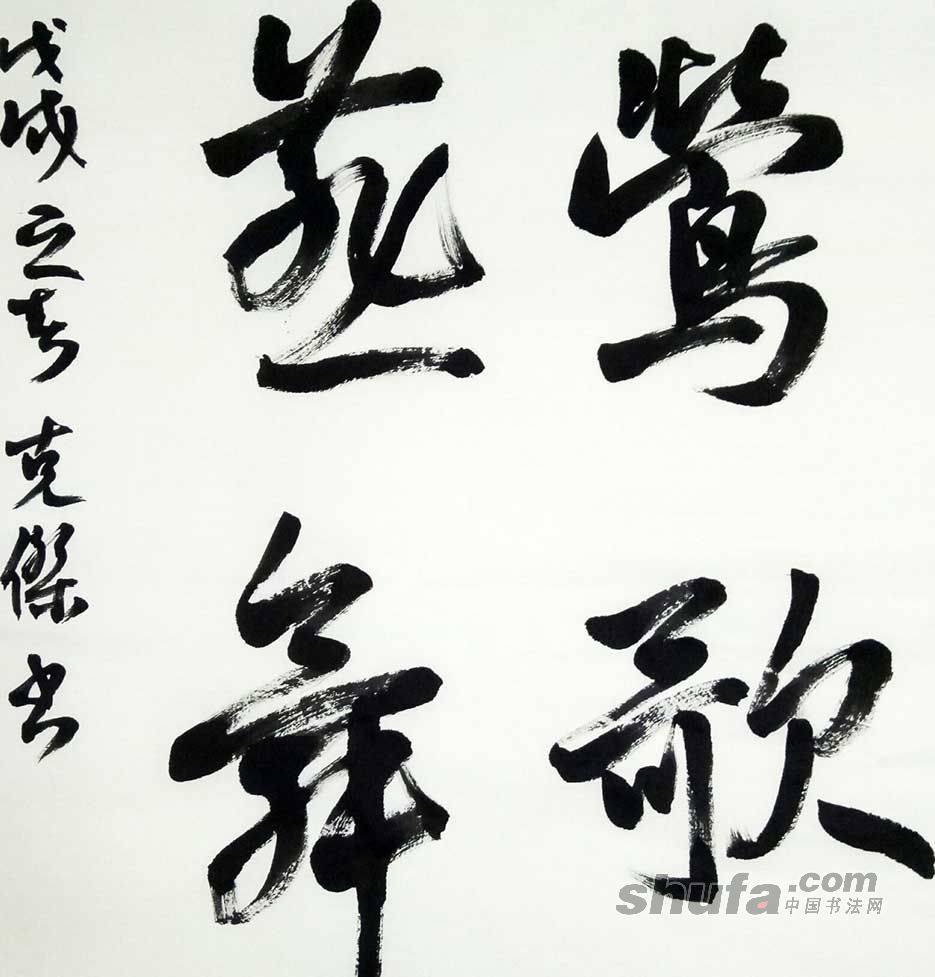 鶯歌
燕舞
戊戌之春 克傑书
shufa.com
中国书法网